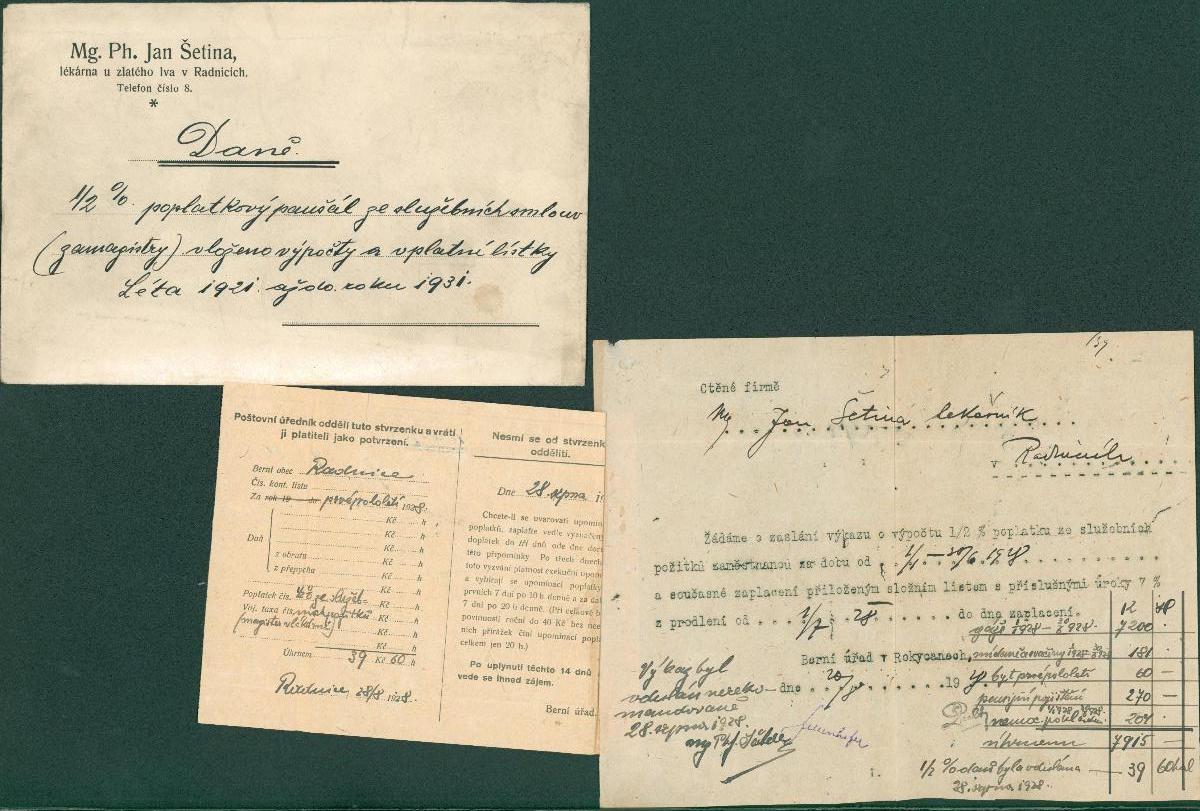 Mg. Ph. Jan Šetina,
lékárna u zlatého lva v Radnicích.
Telefon číslo 8.
*
Daně.
1/2 %. poplatkový paušál ze služebních smluv
(zamagistry) vloženo výpočty a vplatní lístky
Léta 1921. až do. roku 1931.
Poštovní úředník oddělí tuto stvrzenku a vrátí
ji platiteli jako potvrzení.
Berní obec Radnice
Čís. kont. listu
Za rok 19 do prvé pololetí 1928.
Kč h
Kč h
Daň Kč h
z obratu Kč h
z přepychu Kč h
Poplatek čís. 1/2 % ze služeb-
Voj. taxa čís. ních požitků
(magistra v lékárně)
Kč h
Úhrnem 39 Kč 60 h
Radnice 28/8 1928.
Nesmí se od stvrzenk
odděliti.
Dne 28 srpna 19
Chcete-li se uvarovati upomín
poplatků, zaplaťte vedle vyznačený
doplatek do tří dnů ode dne doru
této připomínky. Po třech dnech
toto vyzvání platnost exekuční upomín
a vybírají se upomínací poplatky
prvních 7 dní po 10 h denně a za da
7 dní po 20 h denně. (Při celkové b
povinnosti roční do 40 Kč bez nece
ních přirážek činí upomínací popla
celkem jen 20 h.)
Po uplynutí těchto 14 dnů
vede se ihned zájem.
Berní úřad.
139
Ctěné firmě
Mg Jan Šetina lekárník
v Radnicích
Žádáme o zaslání výkazu o výpočtu 1/2 % poplatku ze služebních
požitků zaměstnanou za dobu od 1/1 – 30/6. 1928
a současné zaplacení přiloženým složním listem s příslušnými úroky 7 %
z prodlení od 1/7 28 do dne zaplacení.
Berní úřad v Rokycanech,
dne 20/8 1928
Výkaz byl
vdeslán nereko-
mandované
28. srpna 1928.
Kč
gáže 1/1 1928 – 30/6 1928 7200
181 ·
byt prvé pololetí 60 —
pensijní pojištění 270 —
204 ·
úhrnem 7915 —
1/2 % daně byla vdeslána — 39 60 hal
28. srpna 1928.